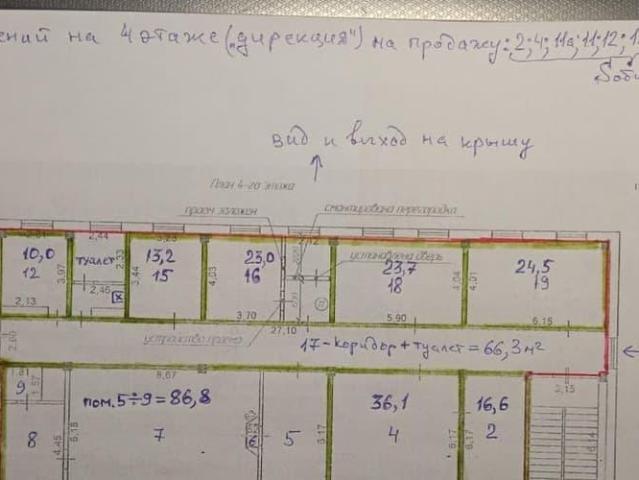 ений на 4 этаже („дирекция") на продажу: 2; 4; 11а; 11; 12; 1
Sоби
вид и выход на крышу
План 4-го этажа
проем заложен
смонтирована перегородка
2,44
10,0
туалет
13,2
23,0
установлена дверь
23,7
24,5
12
15
16
18
19
3,97
2,33
3,44
4,03
4,04
4,01
2,13
2,46
x
3,70
27,10
5,90
6,15
устройство проема
17-коридор+туалет=66,3м²
2,60
8,67
2,15
9
1,57
пом. 5÷9=86,8
36,1
16,6
8
7
5
4
2
4,45
6,15
6,17
6,17
6,17